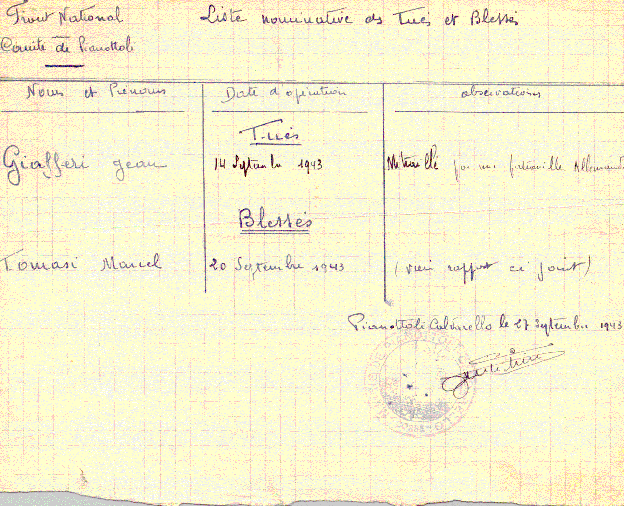 Front National
Liste nominative des Tués et Blessés
Comité de Pianottoli
Noms et Prénoms
Date d'opération
observations
Tués
Giafferi jean
14 Septembre 1943
Mitraillé par une patrouille Allemande
Blessés
Tomasi Marcel
20 Septembre 1943
(voir rapport ci joint)
Pianottoli Caldarello le 27 Septembre 1943